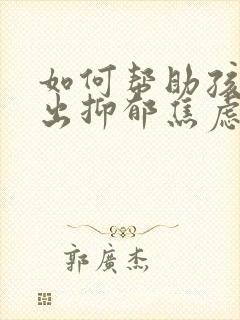 如何帮助孩
出抑郁焦虑
郭廣杰